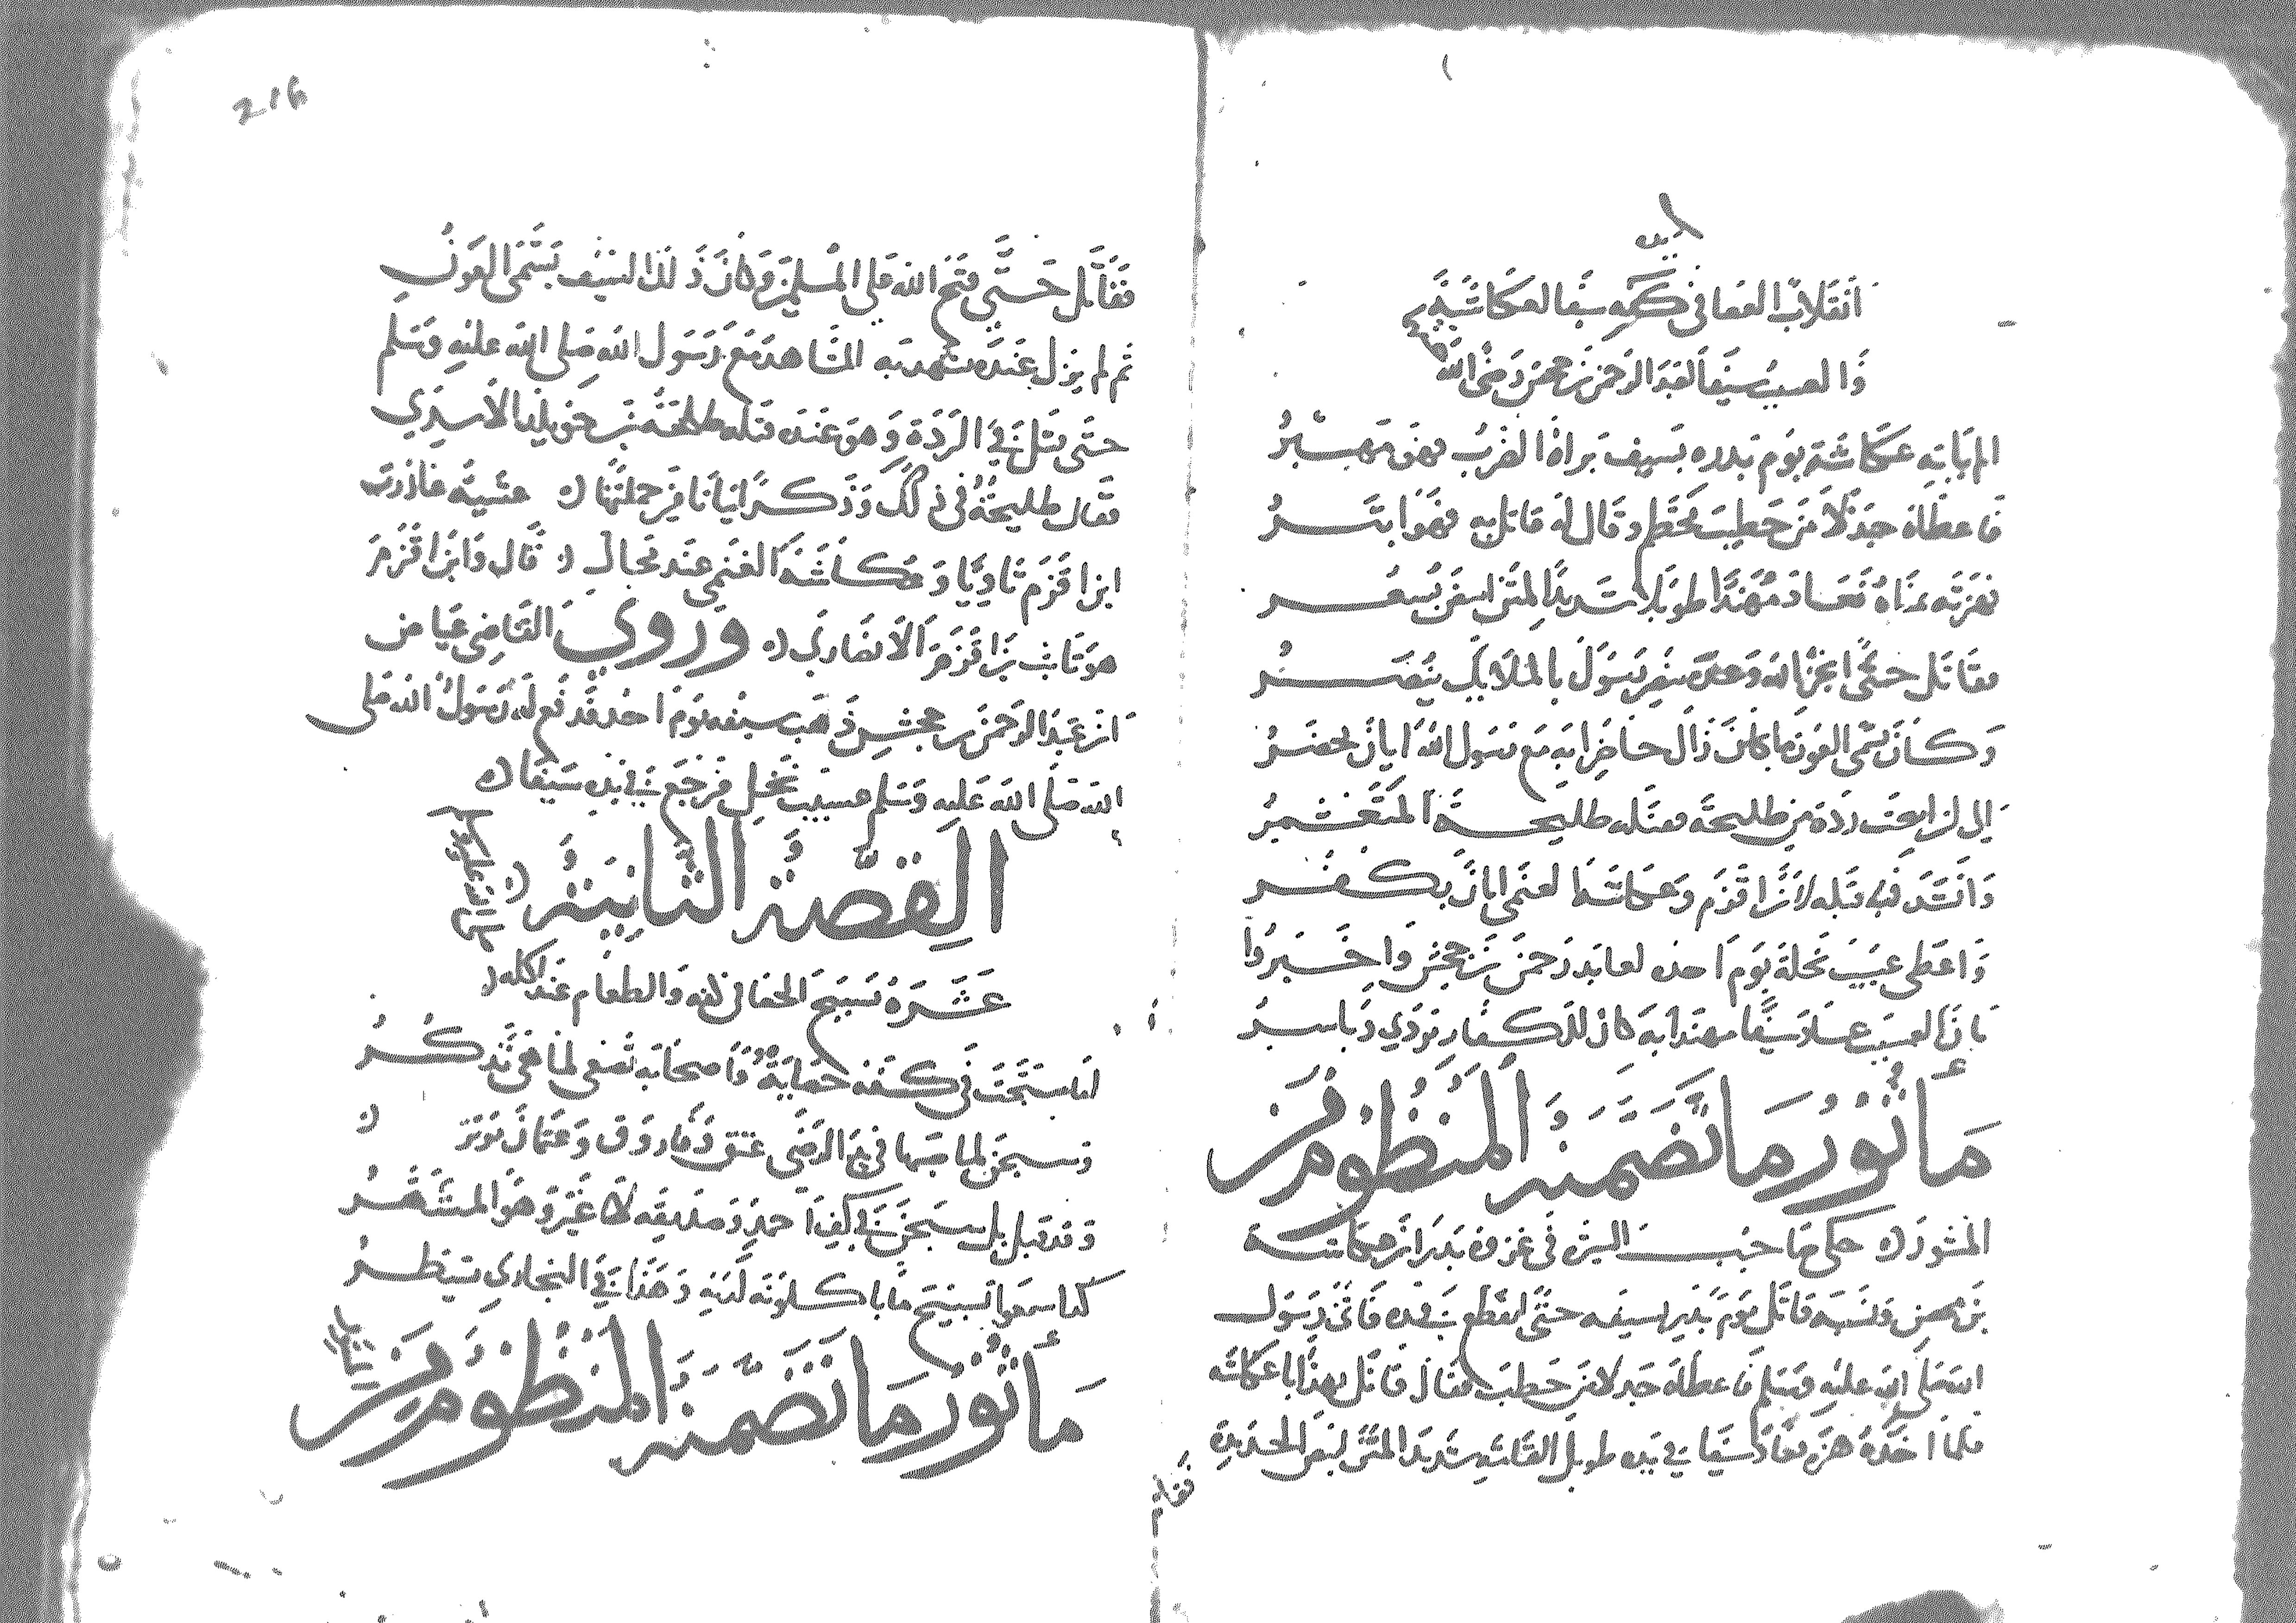 لا يده
انقلاب العصا في كفه سيفا لعكاشة
ذا لعسيب سيفا لعبد الرحمن بن جحش رضي الله
الم يات عكاشة يوم بدره بسيف براه الضرب فهو
فاعطاه جذلا من حطيب محطم وقال له قاتل به فهو ابتر
فهزته يمناه فعاد مهندا طويلا شديد المتن
فقاتل حتى انجز الله وعده بنصر رسول بالملايك ينصر
وكان يسمى العون ما كان زال حاضرا به مع رسول الله ايان يحضر
الى ان ردة من طليحة فقتله طليحة المتغشمر
وانشد في قتله لابن اقزم وعكاشة الغنمي ايان يكفر
واعطى عسيب نخلة يوم احده لعابد رحمن بن جحش واخبروا
بان العسيب عاد سيفا مهندا به كان للكفار يودي وياسر
مأثور ما تضمنه المنظوم من
المنثور حكى صاحب السير في غزوة بدر ان عكاشة
بن محصن قاتل يوم بدر بسيفه حتى انقطع في يده فاتى رسول
الله صلى الله عليه وسلم فاعطاه جدلا من حطب فقال قاتل بهذا يا عكاشه
فلما اخذه هزه فعاد سيفا في يده طويل القامة شديد المتن ابيض الحديدة
فقاتل
216
فقاتل حتى فتح الله على المسلمين وكان ذلك السيف يسمى العون
ثم لم يزل عنده يشهد به المشاهد مع رسول الله صلى الله عليه وسلم
حتى قتل في الردة وهو عنده قتله طليحة بن خويلد الاسدي
فقال طليحة في ذلك وذكر ابياتا من جملتها عشية غادرت
ابن اقزم ثاويا وعكاشة الغنمي عند مجال قال وابن اقزم
هو ثابت بن اقزم الانصاري وروي القاضي عياض
ان عبد الرحمن بن جحش ذهب سيفه يوم احد فدفع له رسول الله صلى
الله صلى الله عليه وسلم عسيب نخل فرجع في يده سيفا
القصة الثانية
عشرة تسبيح الحصا في كفه والطعام عند اكله
اما سبحت في كفه حصاية واصحابه تصغي لما هي تذكر
وسبحن لما صبها في يد الرضي عتيق وفاروق وعثمان
وقد قيل بل سبحن في كف احمد وصديقه لا غير وهو المشتهر
كما سمعوا تسبيح ما ياكلونه لديه وهذا في البخاري يسطر
مأثور ما تضمنه المنظوم من